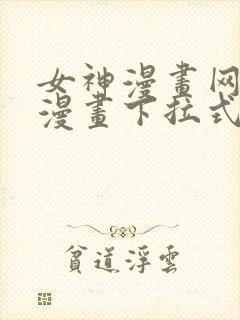 女神漫畫网
漫畫下拉式
貧道浮雲